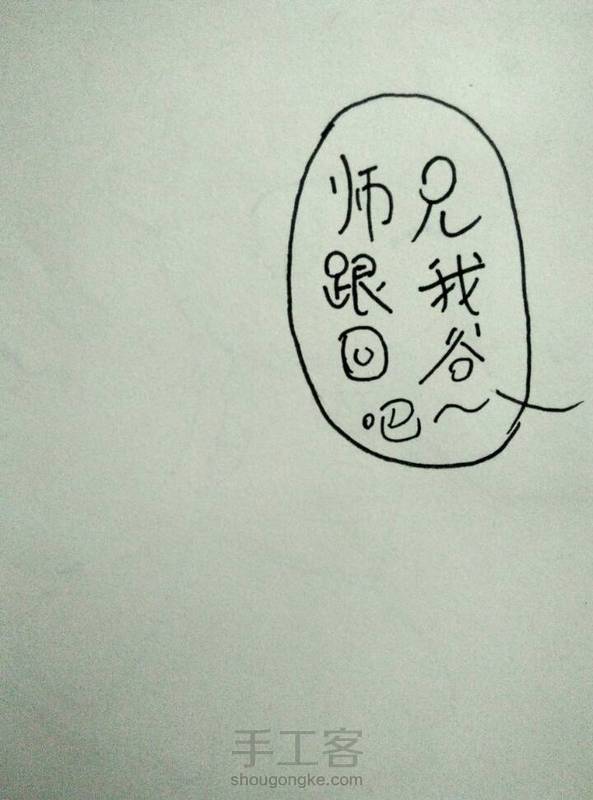 师兄
跟我
回谷
吧～
手工客
shougongke.com